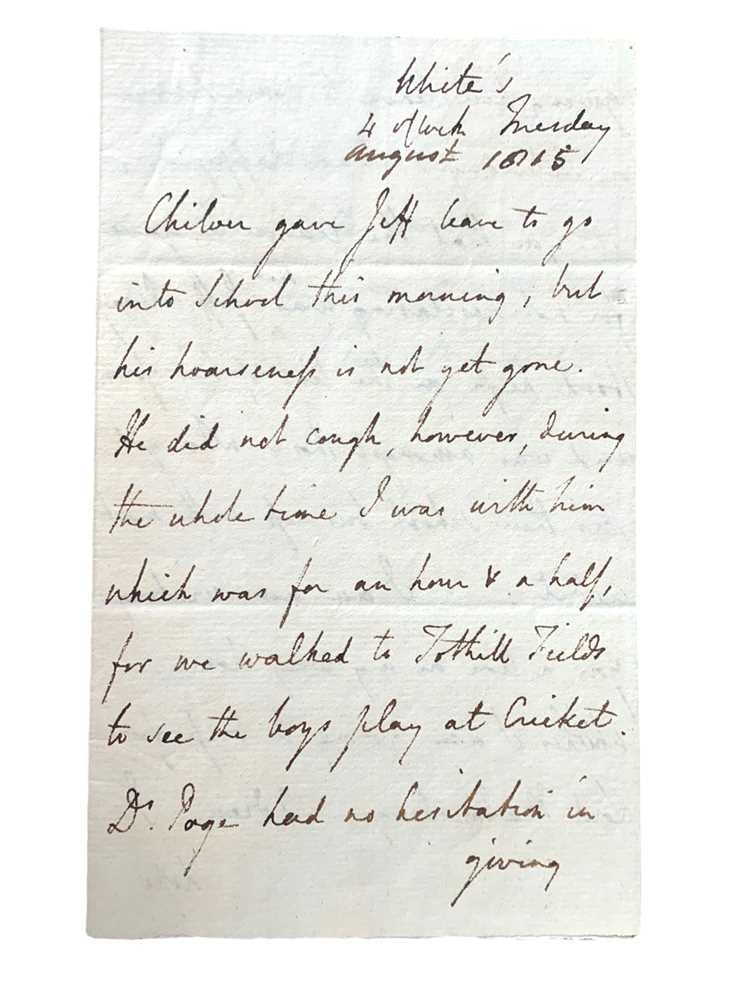 White's
4 o'clock Tuesday
August 1815
Chilver gave Jeff leave to go
into School this morning, but
his hoarseneſs is not yet gone.
He did not cough, however, during
the whole time I was with him
which was for an hour & a half,
for we walked to Tothill Fields
to see the boys play at Cricket.
Dr. Page had no hesitation in
giving